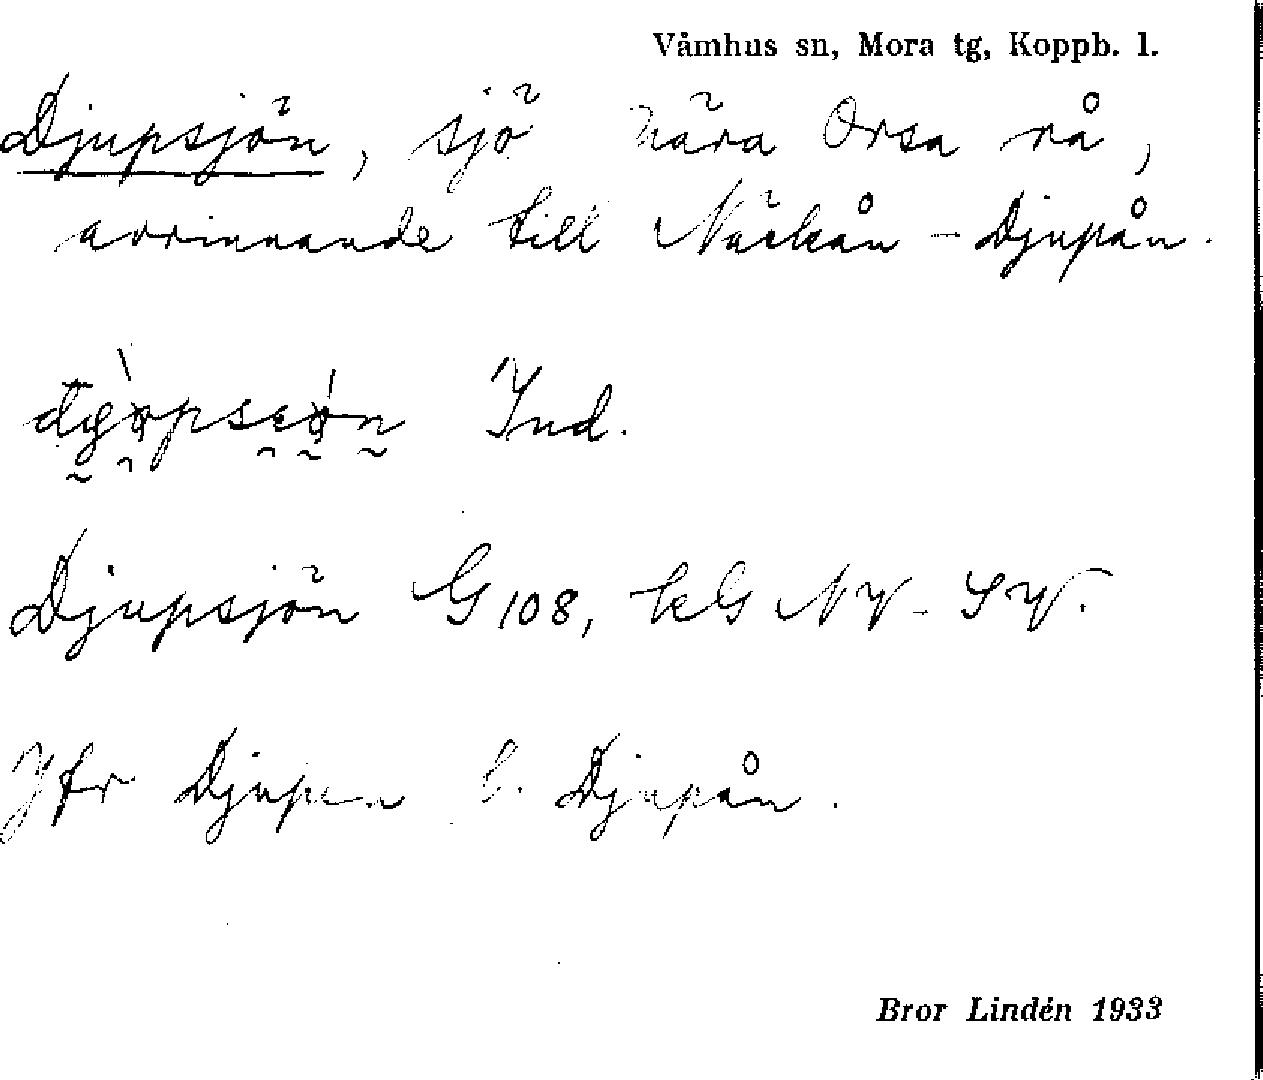 Våmhus sn, Mora tg, Koppb. l.
Djupsjön, sjö nära Orsa rå,
avrinnande till Näckån - Djupån.
Ind.
Djupsjön G 108, kG NV - SV.
Jfr Djupen o. Djupån.
Bror Lindén 1933